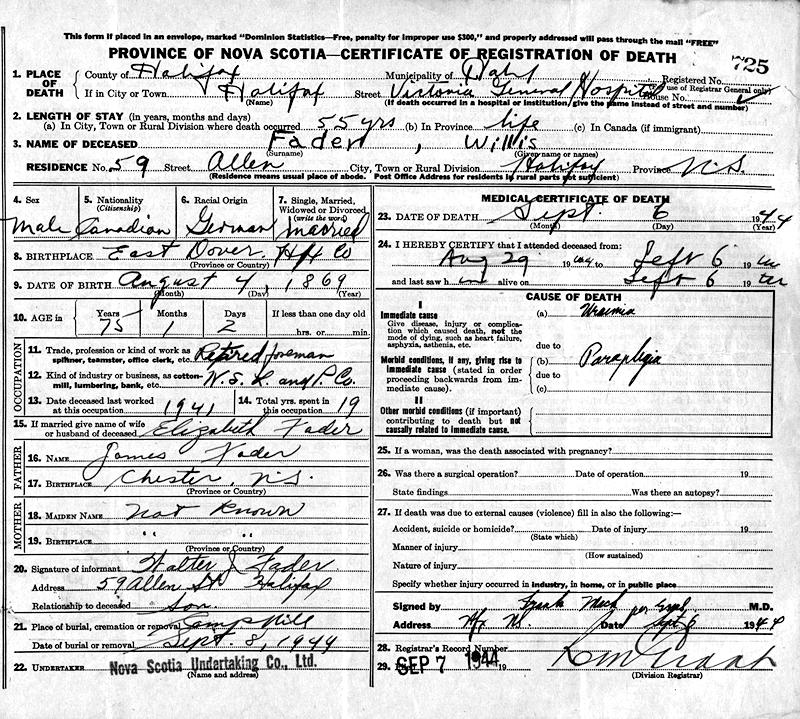 This form if placed in an envelope, marked "Dominion Statistics—Free, penalty for improper use $300," and properly addressed will pass through the mail "FREE"
PROVINCE OF NOVA SCOTIA—CERTIFICATE OF REGISTRATION OF DEATH
725
1. PLACE OF DEATH County of Halifax Municipality of Registered No.
If in City or Town Halifax Street Victoria General Hospital House No. (For use of Registrar General only)
(Name) (If death occurred in a hospital or institution, give the name instead of street and number)
2. LENGTH OF STAY (in years, months and days)
(a) In City, Town or Rural Division where death occurred 55 yrs (b) In Province life (c) In Canada (if immigrant)
3. NAME OF DECEASED Fader, Willis
(Surname) (Given name or names)
RESIDENCE No. 59 Street Allen City, Town or Rural Division Halifax Province N.S.
(Residence means usual place of abode. Post Office Address for residents in rural parts not sufficient)
4. Sex 5. Nationality (Citizenship) 6. Racial Origin 7. Single, Married, Widowed or Divorced (write the word)
Male Canadian German Married
8. BIRTHPLACE East Dover. Hfx Co
(Province or Country)
9. DATE OF BIRTH August 4, 1869
(Month) (Day) (Year)
10. AGE in Years Months Days If less than one day old
75 1 2 hrs. or min.
OCCUPATION
11. Trade, profession or kind of work as spinner, teamster, office clerk, etc. Retired foreman
12. Kind of industry or business, as cotton-mill, lumbering, bank, etc. N. S. L. and P. Co.
13. Date deceased last worked at this occupation 1941 14. Total yrs. spent in this occupation 19
15. If married give name of wife or husband of deceased Elizabeth Fader
FATHER
16. NAME James Fader
17. BIRTHPLACE Chester, N.S.
(Province or Country)
MOTHER
18. MAIDEN NAME Not Known
19. BIRTHPLACE " "
(Province or Country)
20. Signature of informant Walter J. Fader
Address 59 Allen St Halifax
Relationship to deceased Son.
21. Place of burial, cremation or removal Camp Hill
Date of burial or removal Sept 8, 1944
22. UNDERTAKER Nova Scotia Undertaking Co., Ltd.
(Name and address)
MEDICAL CERTIFICATE OF DEATH
23. DATE OF DEATH Sept. 6 1944
(Month) (Day) (Year)
24. I HEREBY CERTIFY that I attended deceased from:
Aug 29 19 to Sept 6 19
and last saw h alive on Sept 6 19
CAUSE OF DEATH
I
Immediate cause
Give disease, injury or complication which caused death, not the mode of dying, such as heart failure, asphyxia, asthenia, etc.
(a) Uraemia
due to
Morbid conditions, if any, giving rise to immediate cause (stated in order proceeding backwards from immediate cause).
(b) Paraplegia
due to
(c)
II
Other morbid conditions (if important) contributing to death but not causally related to immediate cause.
25. If a woman, was the death associated with pregnancy?
26. Was there a surgical operation? Date of operation 19
State findings Was there an autopsy?
27. If death was due to external causes (violence) fill in also the following:—
Accident, suicide or homicide? Date of injury 19
(State which)
Manner of injury
(How sustained)
Nature of injury
Specify whether injury occurred in industry, in home, or in public place
Signed by Frank Mack M.D.
Address Hfx NS Date Sept 6 1944
28. Registrar's Record Number
29. SEP 7 1944 19
(Division Registrar)